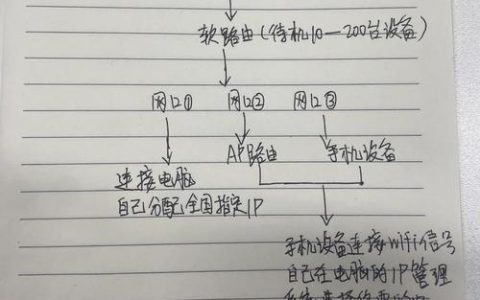 软路由(待机10—200台设备)
网口① 网口② 网口③
AP路由 手机设备
连接电脑
自己分配全国指定IP
手机设备连接wifi信号
自己在电脑的IP管理